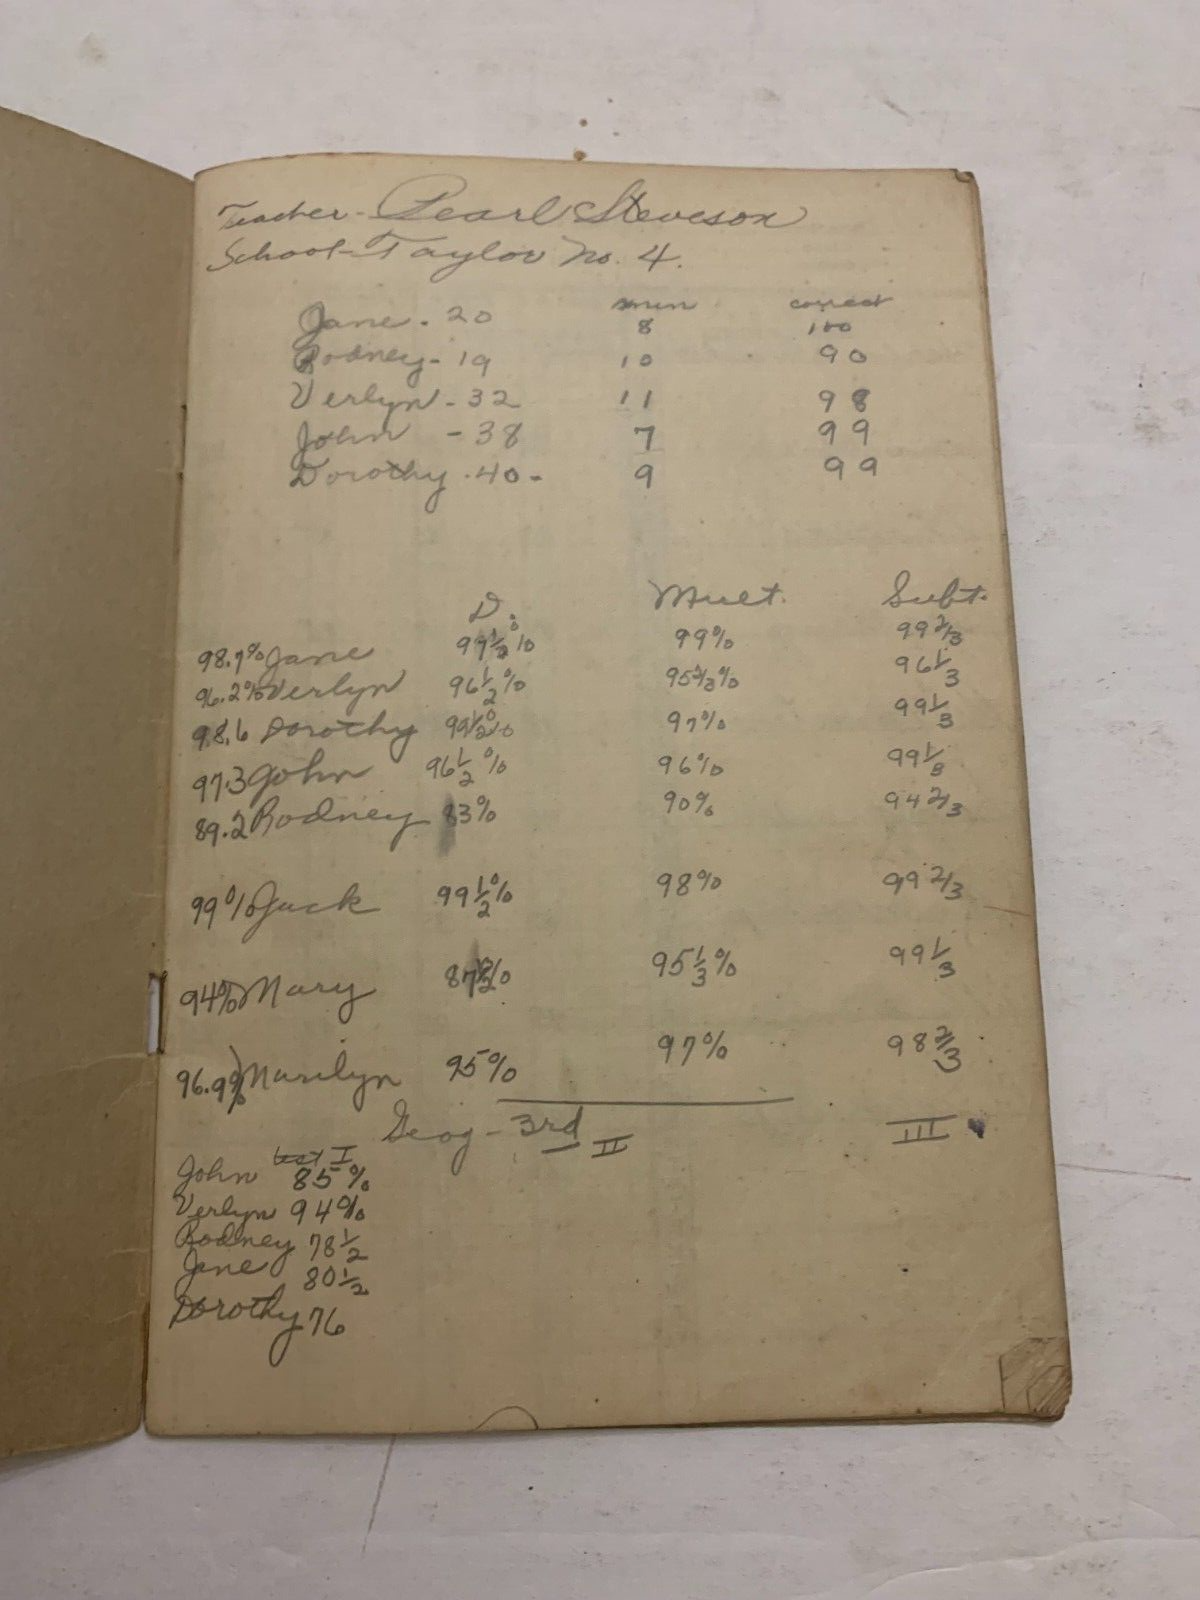 Teacher - Pearl Steveson
School - Taylor No. 4.
min correct
Jane - 20 8 100
Rodney - 19 10 90
Verlyn - 32 11 98
John - 38 7 99
Dorothy - 40 - 9 99
D. Mult. Subt.
98.7% Jane 97½% 99% 99 2/3
96.2% Verlyn 96½% 95 2/3% 96 1/3
98.6 Dorothy 99½% 97% 99 1/3
97.3 John 96½% 96% 99 1/3
89.2 Rodney 83% 90% 94 2/3
99% Jack 99½% 98% 99 2/3
94% Mary 87½% 95 1/3% 99 1/3
96.9% Marilyn 95% 97% 98 2/3
Geog - 3rd II III
test I
John 85%
Verlyn 94%
Rodney 78½
Jane 80½
Dorothy 76